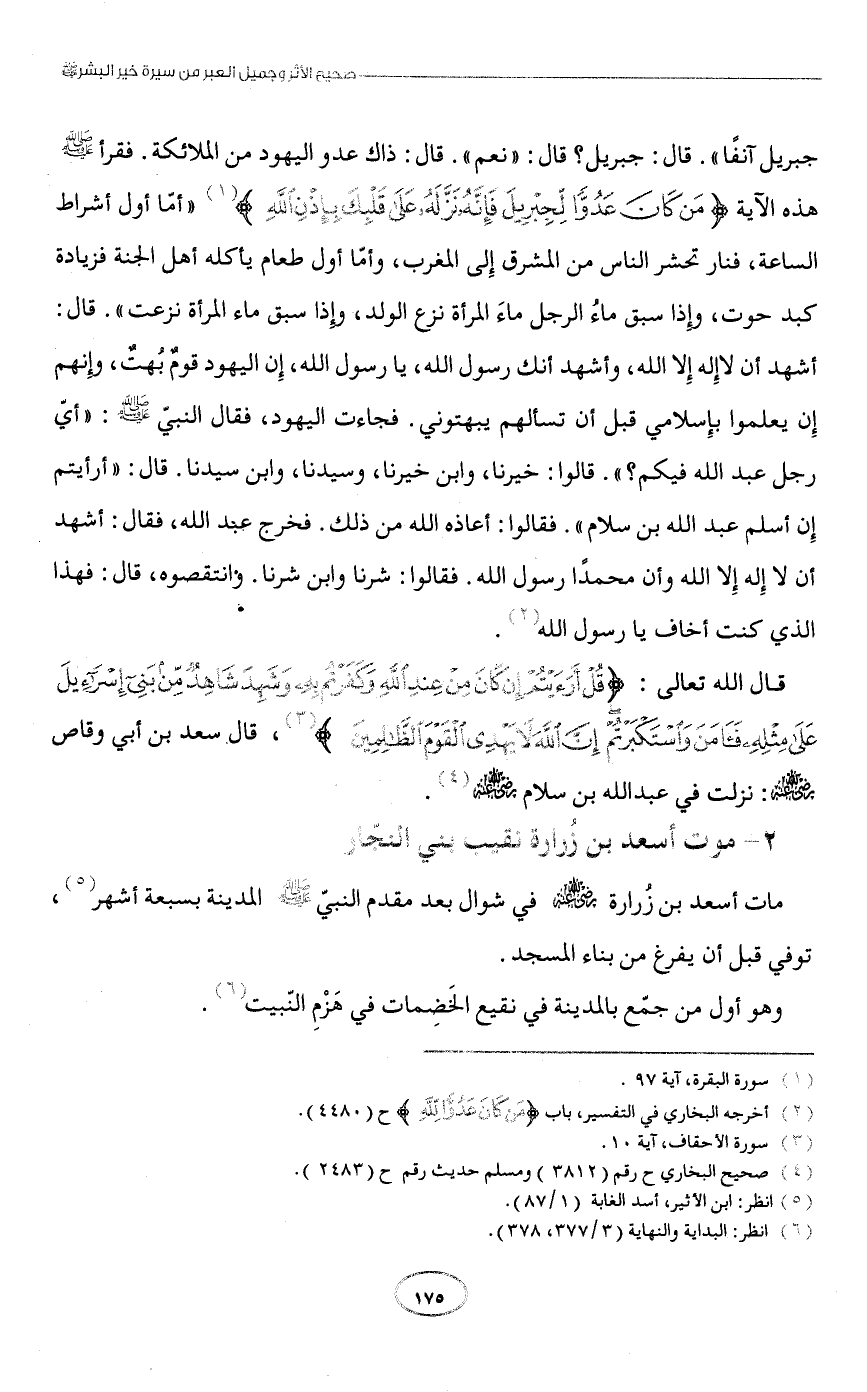 صحيح الأثر وجميل العبر من سيرة خير البشر ﷺ
جبريل آنفًا». قال: جبريل؟ قال: «نعم». قال: ذاك عدو اليهود من الملائكة. فقرأ ﷺ
هذه الآية ﴿ مَن كَانَ عَدُوًّا لِّجِبْرِيلَ فَإِنَّهُ نَزَّلَهُ عَلَىٰ قَلْبِكَ بِإِذْنِ اللَّهِ ﴾(١) «أمّا أول أشراط
الساعة، فنار تحشر الناس من المشرق إلى المغرب، وأمّا أول طعام يأكله أهل الجنة فزيادة
كبد حوت، وإذا سبق ماءُ الرجل ماءَ المرأة نزع الولد، وإذا سبق ماء المرأة نزعت». قال:
أشهد أن لاإله إلا الله، وأشهد أنك رسول الله، يا رسول الله، إن اليهود قومٌ بُهتٌ، وإنهم
إن يعلموا بإسلامي قبل أن تسألهم يبهتوني. فجاءت اليهود، فقال النبيّ ﷺ : «أيّ
رجل عبد الله فيكم؟». قالوا: خيرنا، وابن خيرنا، وسيدنا، وابن سيدنا. قال: «أرأيتم
إن أسلم عبد الله بن سلام». فقالوا: أعاذه الله من ذلك. فخرج عبد الله، فقال: أشهد
أن لا إله إلا الله وأن محمدًا رسول الله. فقالوا: شرنا وابن شرنا. وانتقصوه، قال: فهذا
الذي كنت أخاف يا رسول الله(٢) .
قال الله تعالى : ﴿ قُلْ أَرَءَيْتُمْ إِن كَانَ مِنْ عِندِ اللَّهِ وَكَفَرْتُم بِهِ وَشَهِدَ شَاهِدٌ مِّنْ بَنِي إِسْرَاءِيلَ
عَلَىٰ مِثْلِهِ فَـَٔامَنَ وَاسْتَكْبَرْتُمْ إِنَّ اللَّهَ لَا يَهْدِي الْقَوْمَ الظَّالِمِينَ ﴾(٣) ، قال سعد بن أبي وقاص
رضي الله عنه: نزلت في عبدالله بن سلام رضي الله عنه(٤) .
٢- موت أسعد بن زُرارة نقيب بني النجّار
مات أسعد بن زُرارة رضي الله عنه في شوال بعد مقدم النبيّ ﷺ المدينة بسبعة أشهر(٥) ،
توفي قبل أن يفرغ من بناء المسجد .
وهو أول من جمّع بالمدينة في نقيع الخَضِمات في هَزْمِ النّبيت(٦) .
(١) سورة البقرة، آية ٩٧ .
(٢) أخرجه البخاري في التفسير، باب ﴿مَن كَانَ عَدُوًّا لِّلَّهِ ﴾ ح (٤٤٨٠).
(٣) سورة الأحقاف، آية ١٠.
(٤) صحيح البخاري ح رقم (٣٨١٢) ومسلم حديث رقم ح (٢٤٨٣).
(٥) انظر: ابن الأثير، أسد الغابة (١/ ٨٧).
(٦) انظر: البداية والنهاية (٣/ ٣٧٧، ٣٧٨).
١٧٥